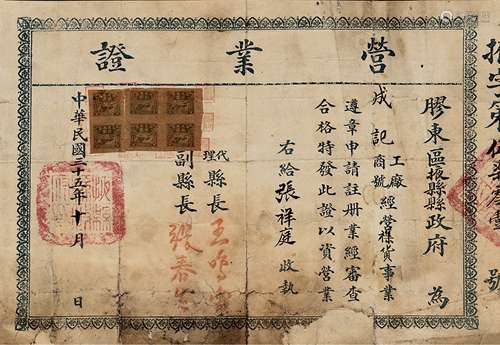 營業證
膠東區掖縣縣政府 為
成記 工廠 商號 經營襍貨事業
遵章申請註册業經審查
合格特發此證以資營業
右給張祥庭 收執
代理縣長 王
副縣長 張春
中華民國三十五年十月 日
號